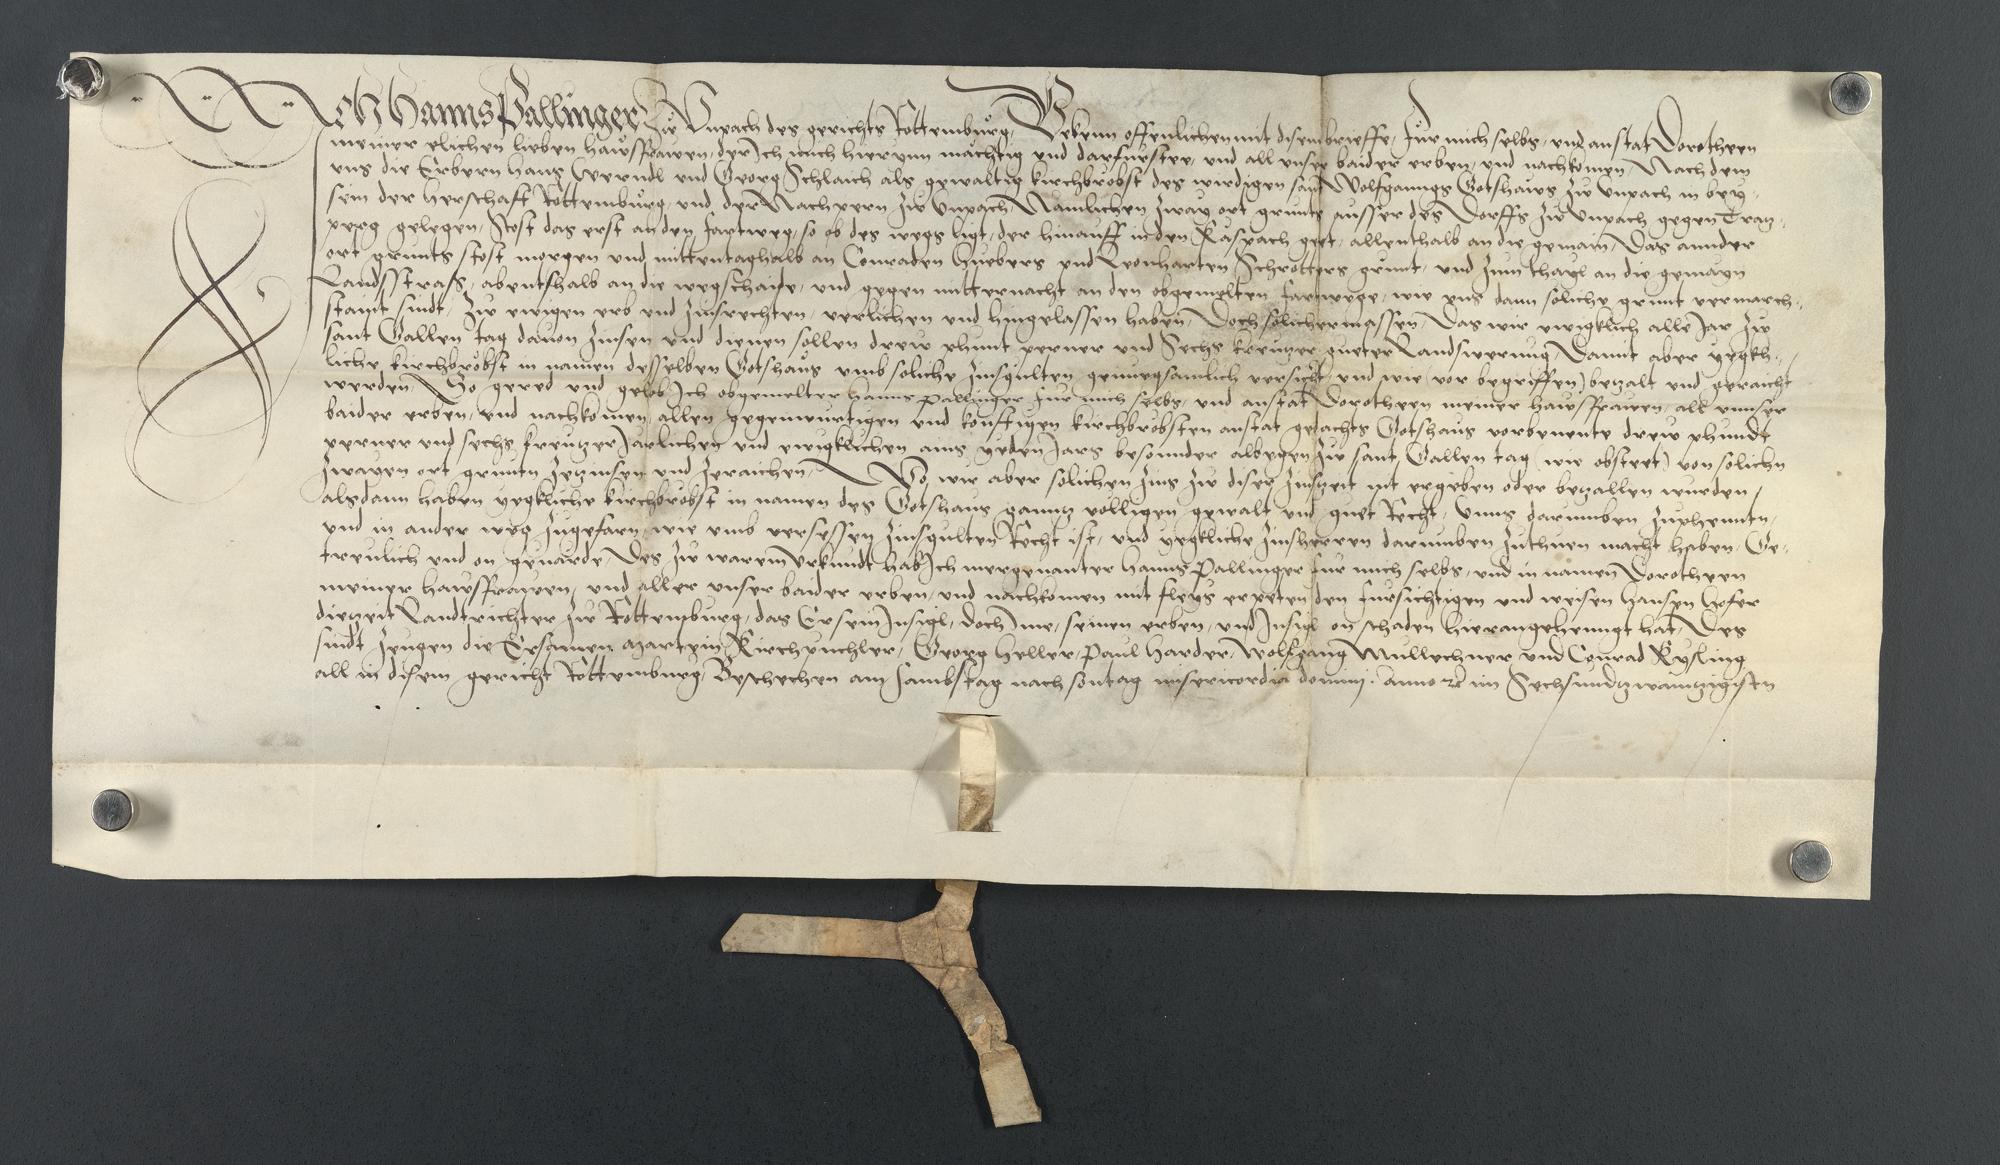 Ich Hanns Pallinger Zw Unpach des gerichts Rottemburg, Bekenn offenlichen mit disem brieffe, fur mich selbs, und anstat Dorotheen
meiner elichen lieben hawsfrawen, der Ich mich hierynn mächtig und darfursteer, und all unser baider erben, und nachkomen, Nach dem
uns die Erbern Hans Werndl und Georg Schlaich als gewaltig kirchbröbst des wirdigen sant Wolfganngs Gotshaws zw Unpach in bey-
sein der herschaft Rottemburg, und der Nachpern zw Unpach, Namlichen zway ort grunts ausser des Dorffs zw Unpach gegen
perg gelegen, Stost das erst an den fartweg, so ob des wegs ligt, der hinauff in den Raspach geet, allenthalb an die gemain, Das annder
ort grunts stost morgen und mittentaghalb an Conraden Huebers und Leonharten Schrotters grunt, und zum thayl an die gemayn
Landsstrass, abentshalb an die wegschaide, und gegen mitternacht an den obgemelten fartwege, wie uns dann soliche grunt vermarch-
staint sindt, Zw ewigen erb und zinsrechten, verlichen und hingelassen haben, Doch solichermassen, Das wir ewigklich alle Jar zw
sant Gallen tag davon zinsen und dienen sollen drew phunt perner und Sechs kreutzer gueter Landswerung, Damit aber yegkh-
liche kirchbröbst in namen desselben Gotshaus umb soliche zinsgulten genuegsamlich versicht und wie (vor begriffen) betzalt und geraicht
werden, So gered und gelob Ich obgemelter Hanns Pallinger fur mich selbs, und anstat Dorotheen meiner hawsfrawen, all unnser
baider erben, und nachkomen, allen gegenwurtigen und konftigen kirchbröbsten anstat gedachts Gotshaus vorbenente drew phundt
perner und sechs kreutzer Jarlichen und ewigklichen ains yeden Jars besonnder albegen zw sant Gallen tag (wie obsteet) von solichn
zwayen ort gruntn zetzinsen und zeraichen, Wo wir aber solichen zins zw diser zinszeit nit ergeben oder betzallen wurden,
alsdann haben yegkliche kirchbröbst in namen des Gotshaus gantz völligen gewalt und guet Recht, Unns darumben zuphenntn,
und in ander weg zugefarn, wie umb versessen zinsgulten Recht ist, und yegkliche zinsherren darumben zuthuen macht haben, Ge-
treulich und on gevärde, Des zw warem Urkundt hab Ich mergenanter Hanns Pallinger fur mich selbs, und in namen Dorotheen
meiner hawsfrawen, und aller unser baider erben, und nachkomen mit fleys erpeten den fursichtigen und weisen Hansen Hofer
dietzeit Landrichter zw Rottemburg, das Er sein Insigl, doch Ime, seinen erben, und Insigl on schaden hieran gehenngt hat, Des
sindt zeugen die Ersamen Martein Kirchpuchler, Georg Heller, Paul Harder, Wolfgang Mullechner und Conrad Rysling
all in disem gericht Rottemburg, Beschechen am Sambstag nach sontag misericordia domini. Anno etc im Sechsundtzwaintzigisten